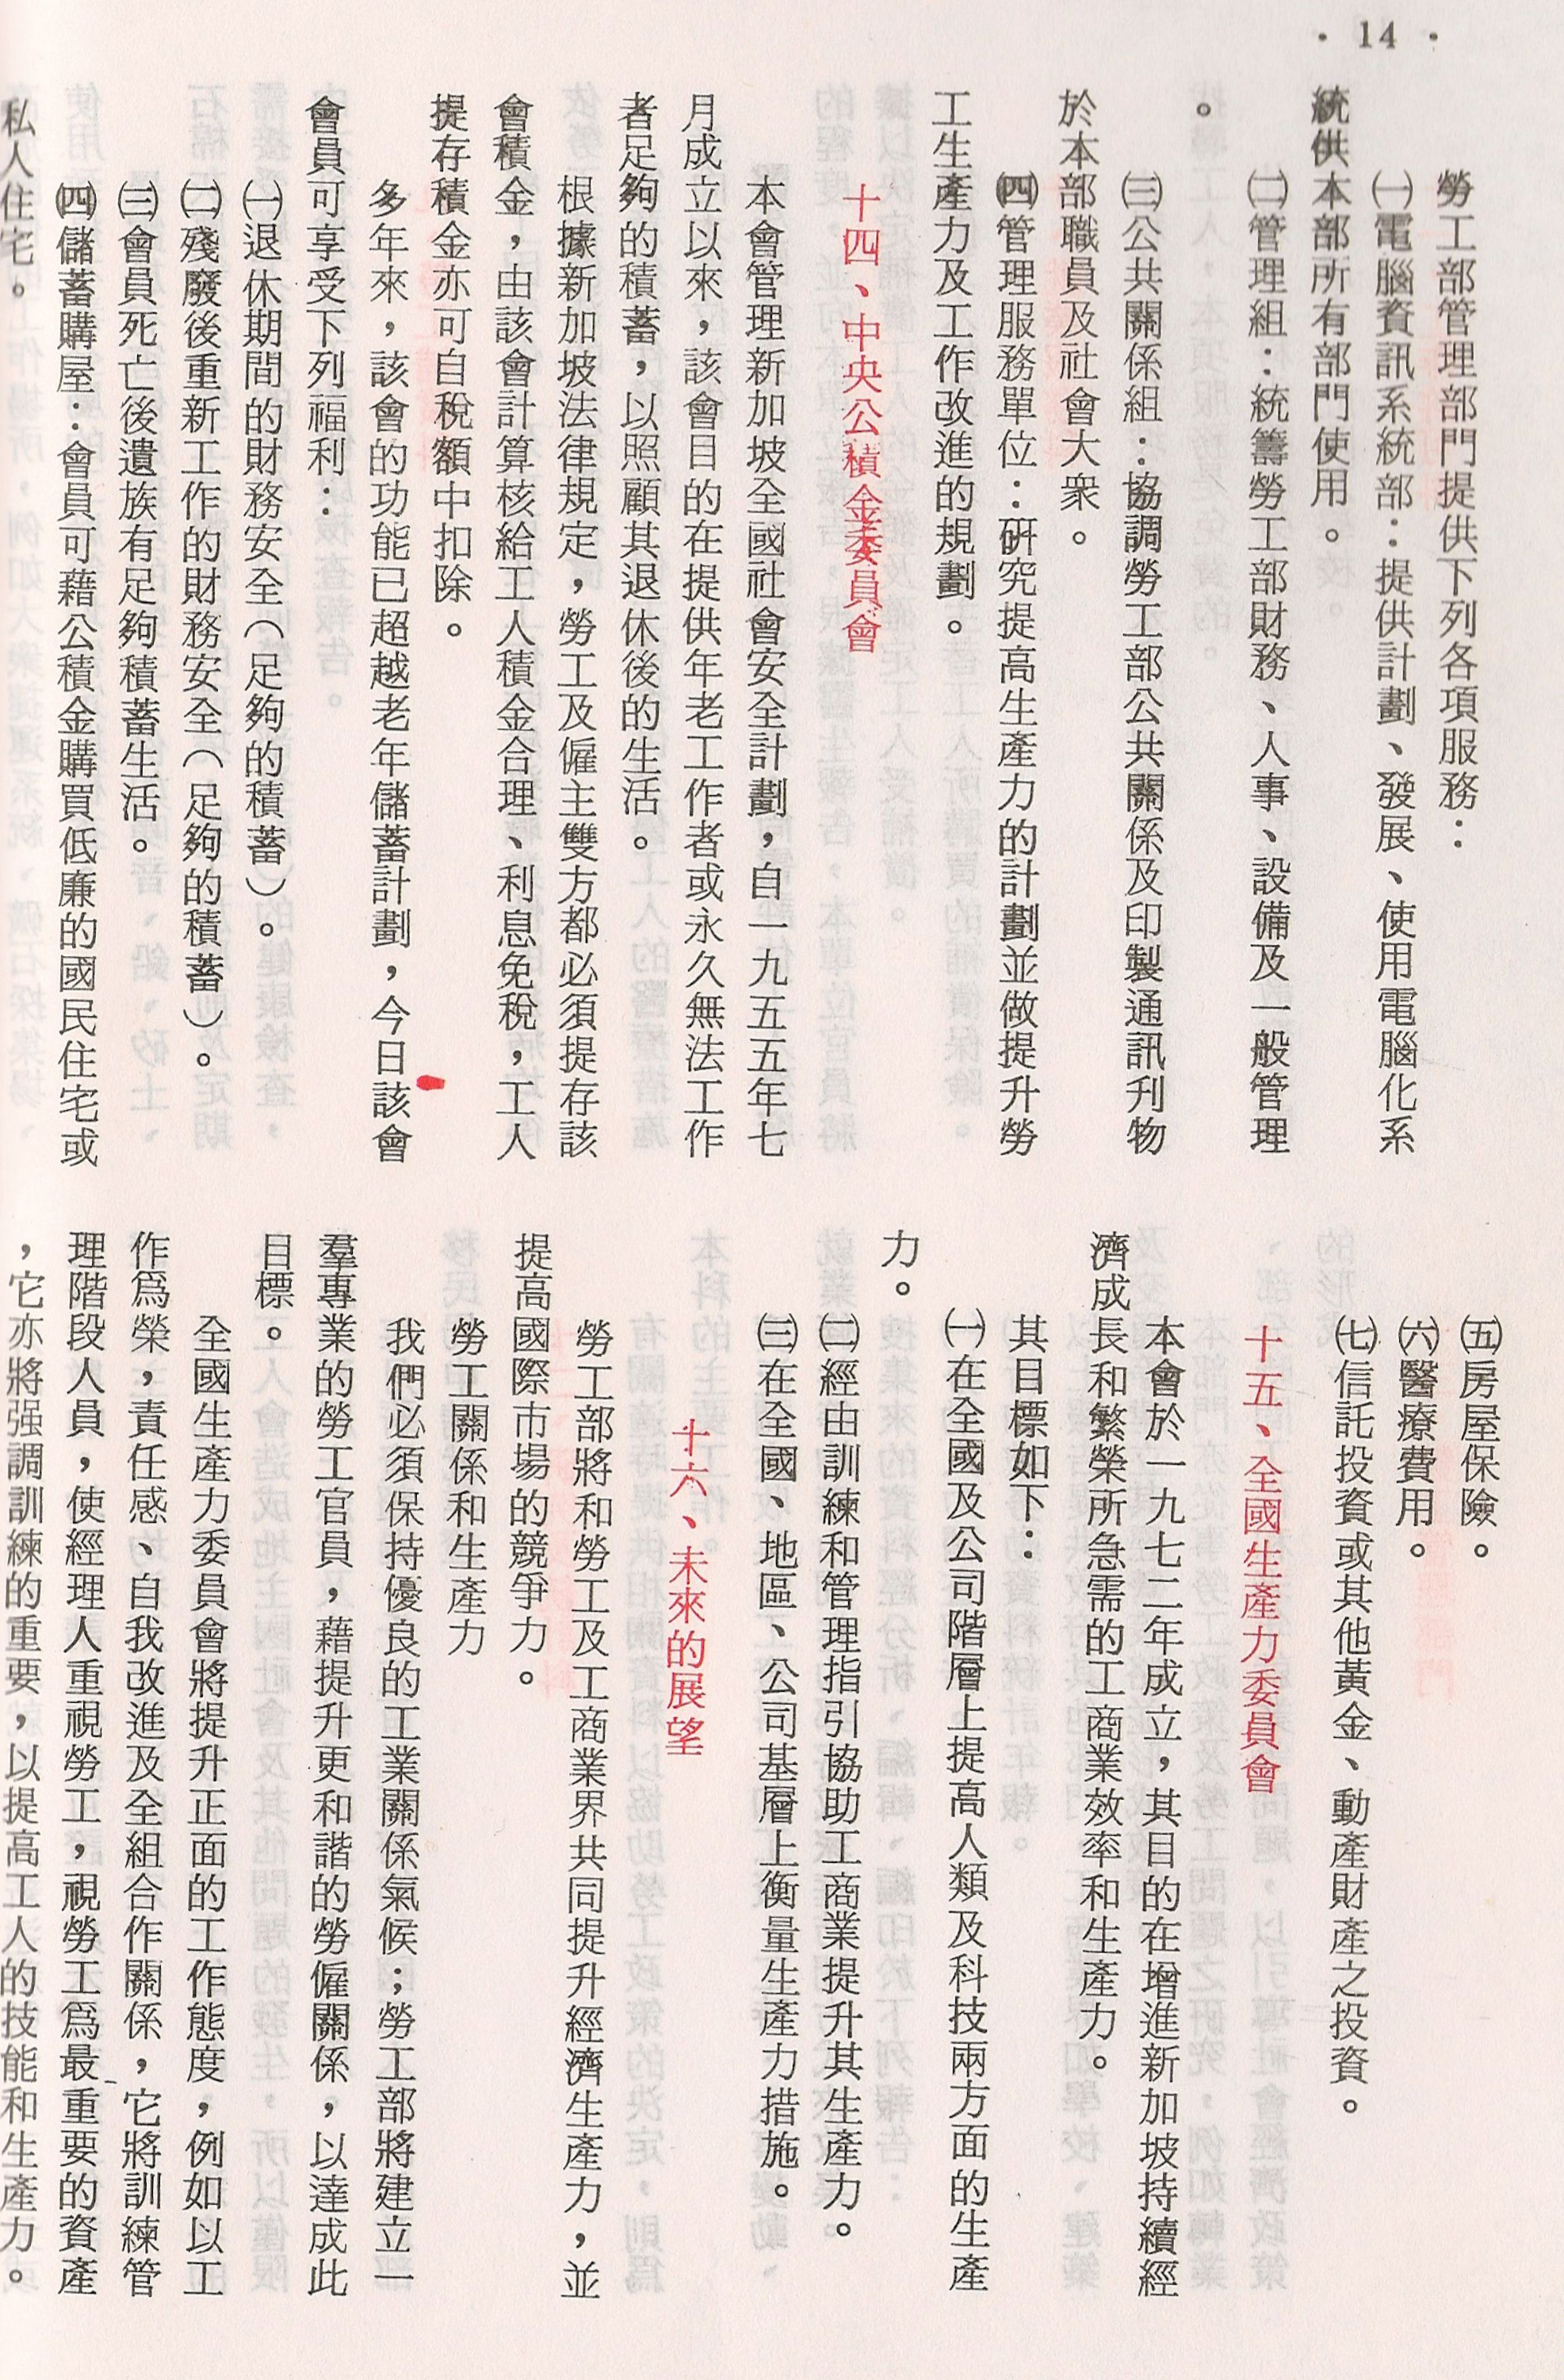 • 14 •
勞工部管理部門提供下列各項服務：
㈠電腦資訊系統部：提供計劃、發展、使用電腦化系
統供本部所有部門使用。
㈡管理組：統籌勞工部財務、人事、設備及一般管理
。
㈢公共關係組：協調勞工部公共關係及印製通訊刋物
於本部職員及社會大衆。
㈣管理服務單位：研究提高生產力的計劃並做提升勞
工生產力及工作改進的規劃。
十四、中央公積金委員會
本會管理新加坡全國社會安全計劃，自一九五五年七
月成立以來，該會目的在提供年老工作者或永久無法工作
者足夠的積蓄，以照顧其退休後的生活。
根據新加坡法律規定，勞工及僱主雙方都必須提存該
會積金，由該會計算核給工人積金合理、利息免稅，工人
提存積金亦可自稅額中扣除。
多年來，該會的功能已超越老年儲蓄計劃，今日該會
會員可享受下列福利：
㈠退休期間的財務安全（足夠的積蓄）。
㈡殘廢後重新工作的財務安全（足夠的積蓄）。
㈢會員死亡後遺族有足夠積蓄生活。
㈣儲蓄購屋：會員可藉公積金購買低廉的國民住宅或
私人住宅。
㈤房屋保險。
㈥醫療費用。
㈦信託投資或其他黃金、動產財產之投資。
十五、全國生產力委員會
本會於一九七二年成立，其目的在增進新加坡持續經
濟成長和繁榮所急需的工商業效率和生產力。
其目標如下：
㈠在全國及公司階層上提高人類及科技兩方面的生產
力。
㈡經由訓練和管理指引協助工商業提升其生產力。
㈢在全國、地區、公司基層上衡量生產力措施。
十六、未來的展望
勞工部將和勞工及工商業界共同提升經濟生產力，並
提高國際市場的競爭力。
勞工關係和生產力
我們必須保持優良的工業關係氣候；勞工部將建立一
羣專業的勞工官員，藉提升更和諧的勞僱關係，以達成此
目標。
全國生產力委員會將提升正面的工作態度，例如以工
作爲榮，責任感、自我改進及全組合作關係，它將訓練管
理階段人員，使經理人重視勞工，視勞工爲最重要的資產
，它亦將强調訓練的重要，以提高工人的技能和生產力。